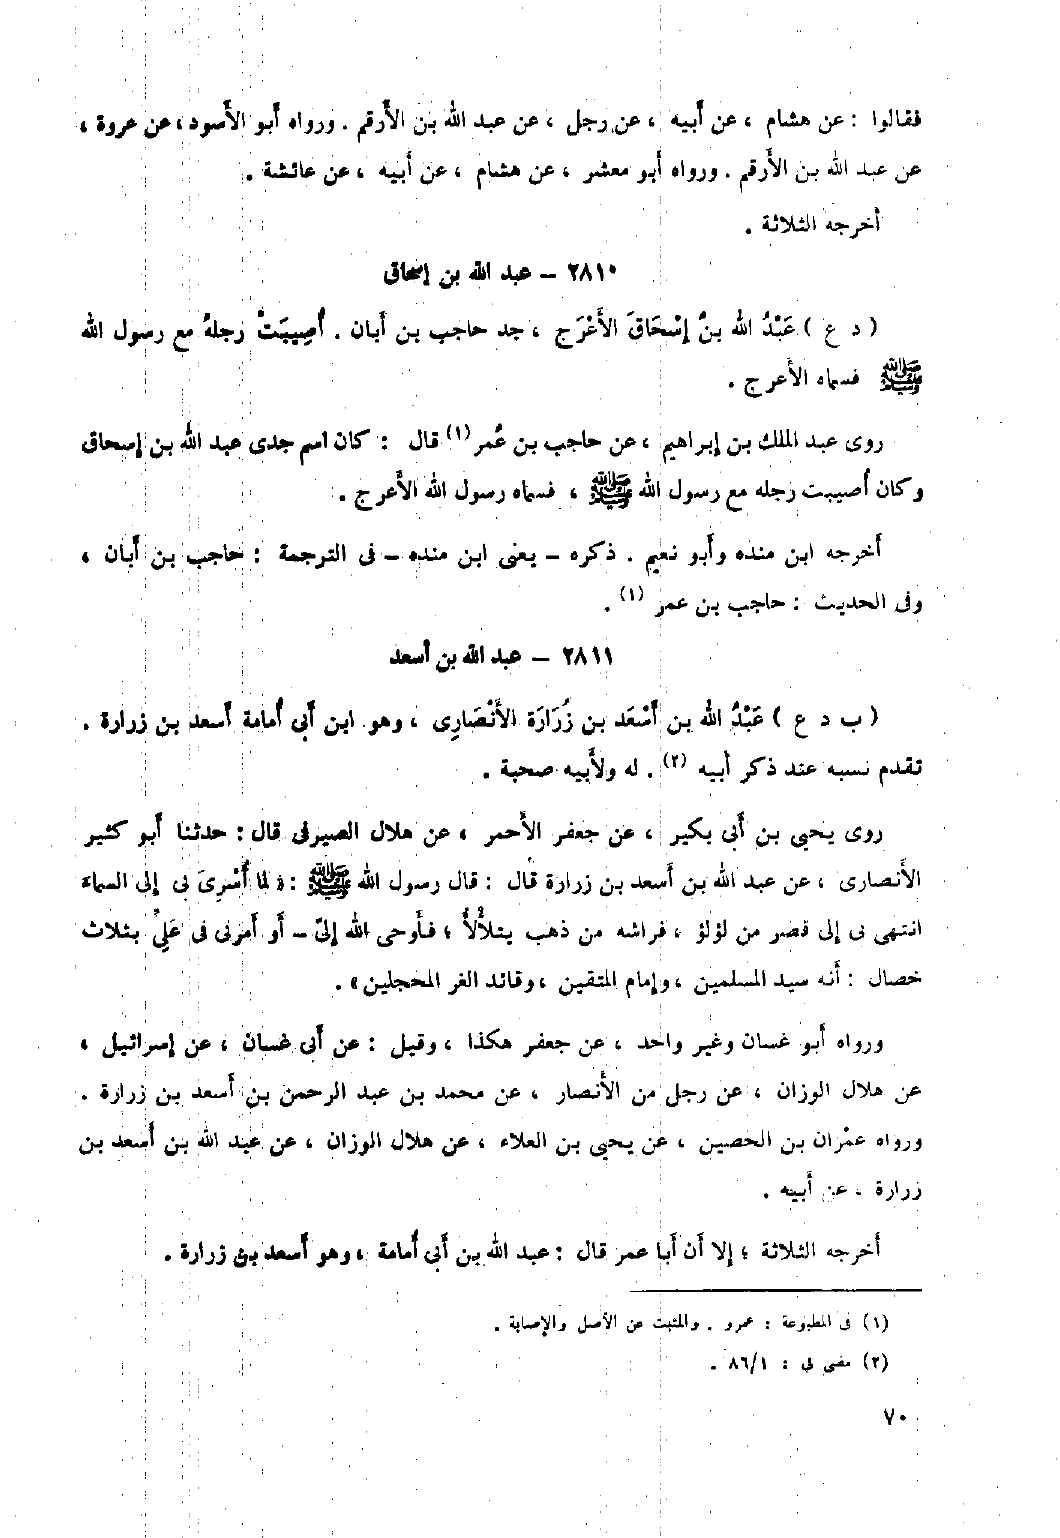 فقالوا : عن هشام ، عن أبيه ، عن رجل ، عن عبد الله بن الأرقم . ورواه أبو الأسود ، عن عروة ،
عن عبد الله بن الأرقم . ورواه أبو معشر ، عن هشام ، عن أبيه ، عن عائشة .
أخرجه الثلاثة .
٢٨١٠ – عبد الله بن إسحاق
( د ع ) عَبْدُ الله بنُ إسْحَاقَ الأَعْرَج ، جد حاجب بن أبان . أُصِيبَتْ رجلهُ مع رسول الله
ﷺ فسماه الأعرج .
روى عبد الملك بن إبراهيم ، عن حاجب بن عُمر (١) قال : كان اسم جدى عبد الله بن إسحاق
وكان أصيبت رجله مع رسول الله ﷺ ، فسماه رسول الله الأعرج .
أخرجه ابن منده وأبو نعيم . ذكره – يعنى ابن منده – فى الترجمة : حاجب بن أبان ،
وفى الحديث : حاجب بن عمر (١) .
٢٨١١ – عبد الله بن أسعد
( ب د ع ) عَبْدُ الله بن أَسْعَد بن زُرَارَة الأَنْصَارِى ، وهو ابن أَبى أُمامة أَسعد بن زرارة .
تقدم نسبه عند ذكر أبيه (٢) . له ولأبيه صحبة .
روى يحيى بن أَبى بكير ، عن جعفر الأحمر ، عن هلال الصيرفى قال : حدثنا أبو كثير
الأنصارى ، عن عبد الله بن أسعد بن زرارة قال : قال رسول الله ﷺ : « لما أُسْرِىَ بى إلى السماء
انتهى بى إلى قصر من لؤلؤ ، فراشه من ذهب يتلألأُ ؛ فأَوحى الله إلىّ – أو أمرنى فى عَلِىِّ بثلاث
خصال : أنه سيد المسلمين ، وإمام المتقين ، وقائد الغر المحجلين » .
ورواه أبو غسان وغير واحد ، عن جعفر هكذا ، وقيل : عن أبى غسان ، عن إسرائيل ،
عن هلال الوزان ، عن رجل من الأنصار ، عن محمد بن عبد الرحمن بن أسعد بن زرارة .
ورواه عمْران بن الحصين ، عن يحيى بن العلاء ، عن هلال الوزان ، عن عبد الله بن أَسعد بن
زرارة . عن أَبيه .
أخرجه الثلاثة ؛ إلا أن أَبا عمر قال : عبد الله بن أَبى أُمامة ، وهو أَسعد بن زرارة .
(١) فى المطبوعة : عمرو . والمثبت عن الأصل والإصابة .
(٢) مضى فى : ٨٦/١ .
٧٠